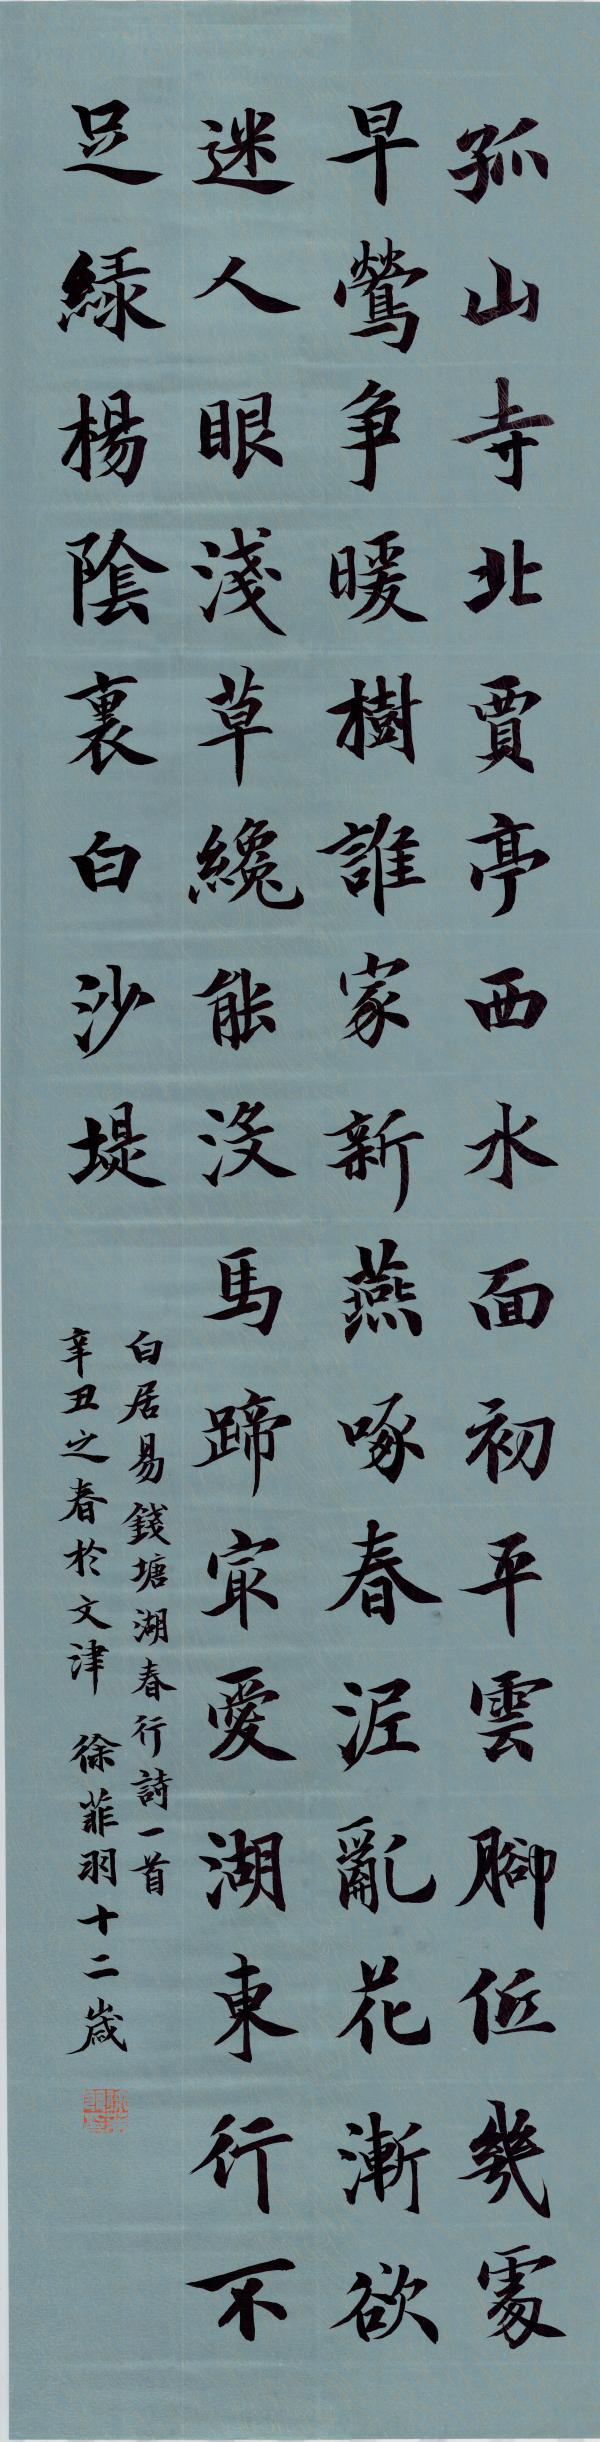 孤山寺北賈亭西水面初平雲腳低幾處
早鶯爭暖樹誰家新燕啄春泥亂花漸欲
迷人眼淺草纔能沒馬蹄最愛湖東行不
足綠楊陰裏白沙堤
白居易錢塘湖春行詩一首
辛丑之春於文津 徐菲羽十二歲